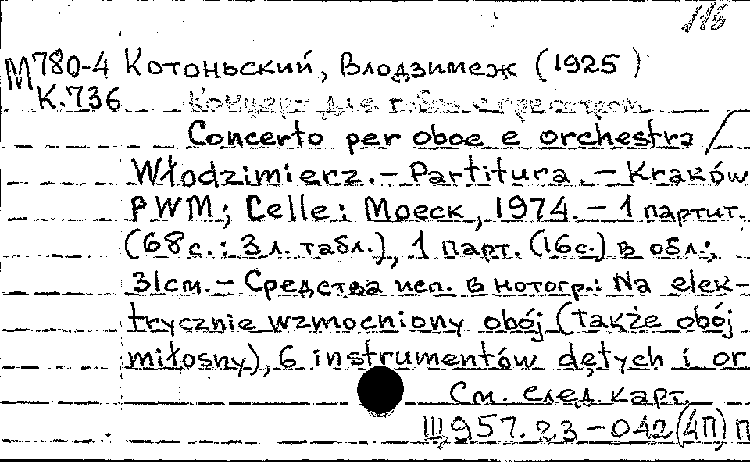 116
М780-4 Котоньский, Влодзимеж (1925 )
К.736 Концерт для гобоя с оркестром
Concerto per oboe e orchestra /
Włodzimierz. – Partitura. – Kraków
PWM; Celle: Moeck, 1974. – 1 партит.
(68с.: 3л. табл.), 1 парт. (16с.) в обл.;
31см. – Средства исп. в нотогр.: Na elek-
trycznie wzmocniony obój (także obój
miłosny), 6 instrumentów dętych i or
См. след. карт.
Щ957.23-042(4П) П